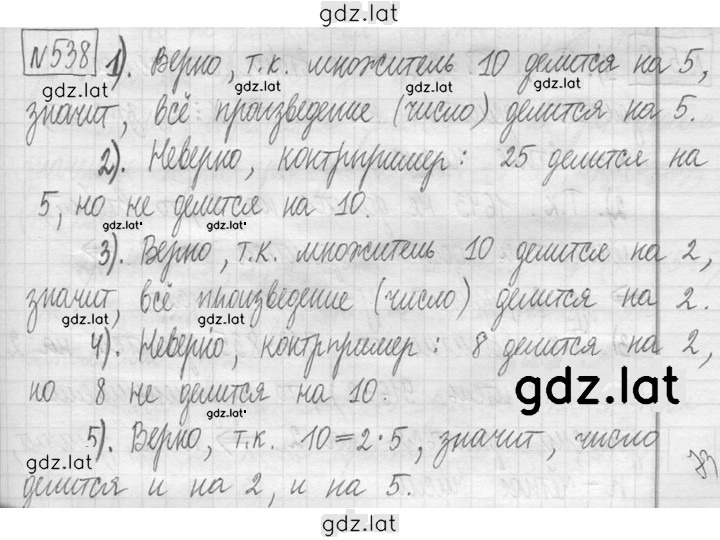 gdz.lat
№538 1). Верно, т.к. множитель 10 делится на 5,
gdz.lat gdz.lat
значит, всё произведение (число) делится на 5.
2). Неверно, контрпример: 25 делится на
5, но не делится на 10.
gdz.lat gdz.lat
3). Верно, т.к. множитель 10 делится на 2,
значит, всё произведение (число) делится на 2.
gdz.lat gdz.lat
4). Неверно, контрпример: 8 делится на 2,
но 8 не делится на 10.
gdz.lat
gdz.lat
5). Верно, т.к. 10=2·5, значит, число
gdz.lat gdz.lat
делится и на 2, и на 5.
gdz.lat